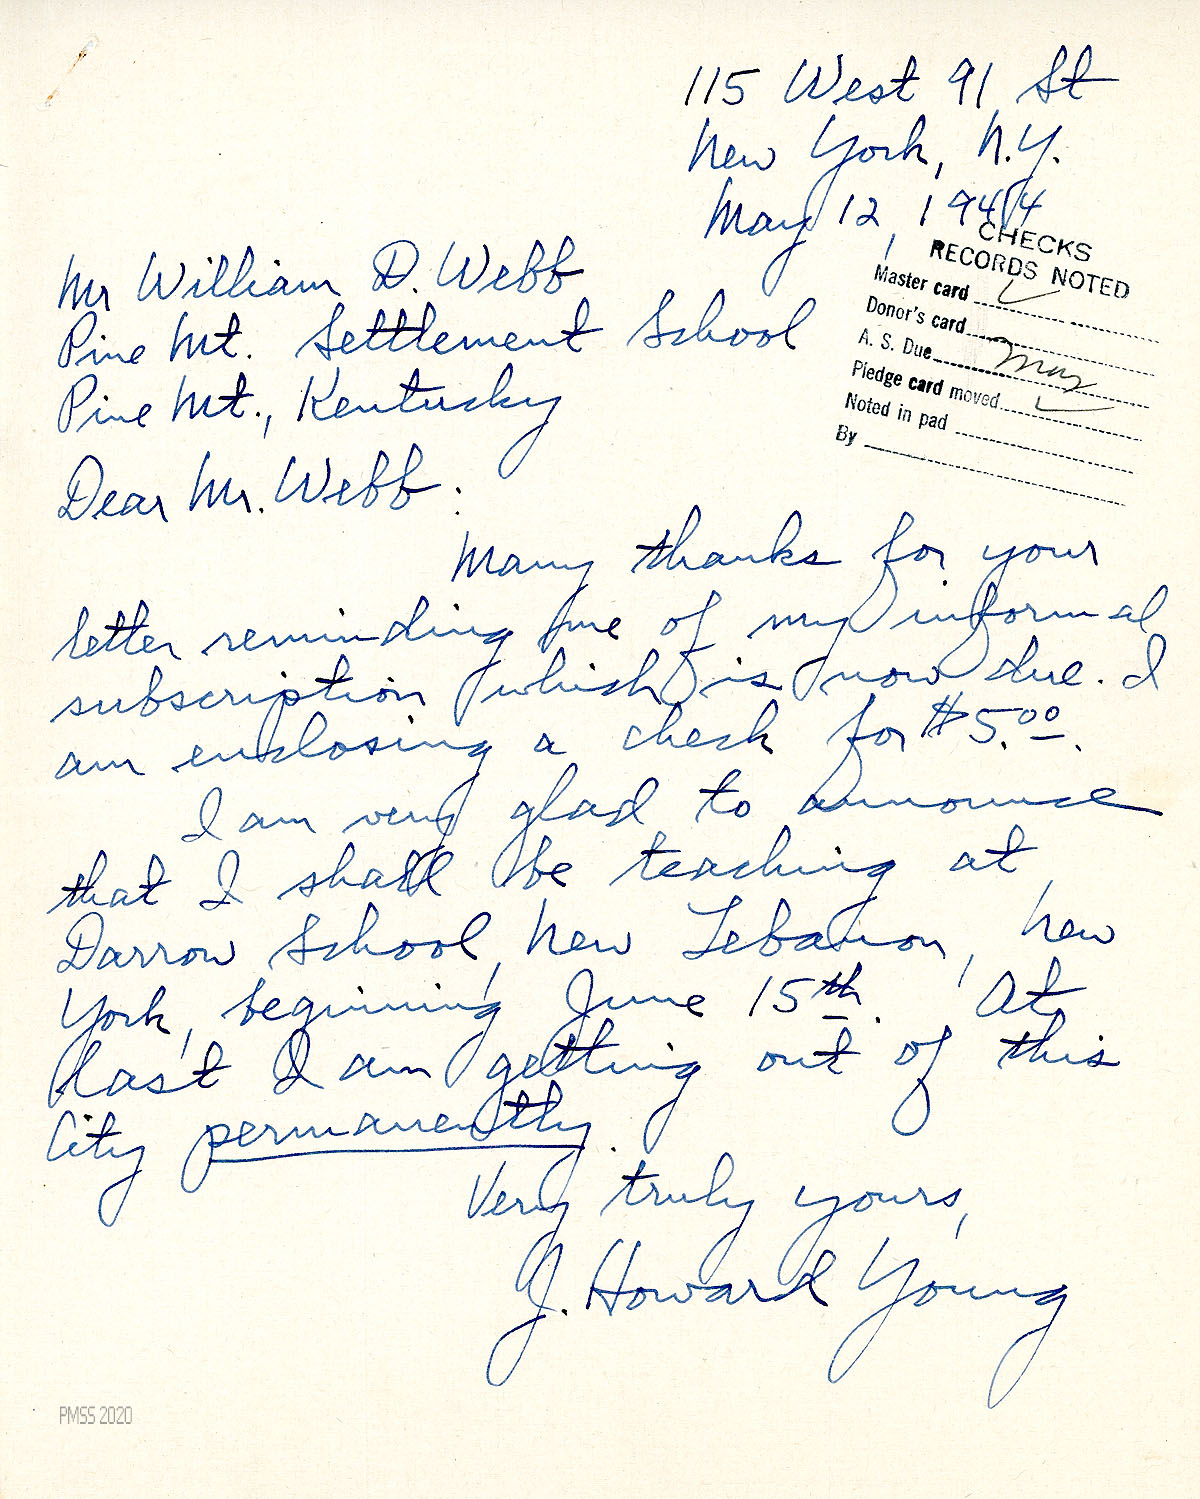 115 West 91 St
New York, N.Y.
May 12, 1944
CHECKS
RECORDS NOTED
Master card
Donor's card
A. S. Due May
Pledge card moved
Noted in pad
By
Mr William D. Webb
Pine Mt. Settlement School
Pine Mt., Kentucky
Dear Mr. Webb:
Many thanks for your
letter reminding me of my informal
subscription which is now due. I
am enclosing a check for $5.00.
I am very glad to announce
that I shall be teaching at
Darrow School, New Lebanon, New
York, beginning June 15th. At
last I am getting out of this
City permanently.
Very truly yours,
J. Howard Young
PMSS 2020